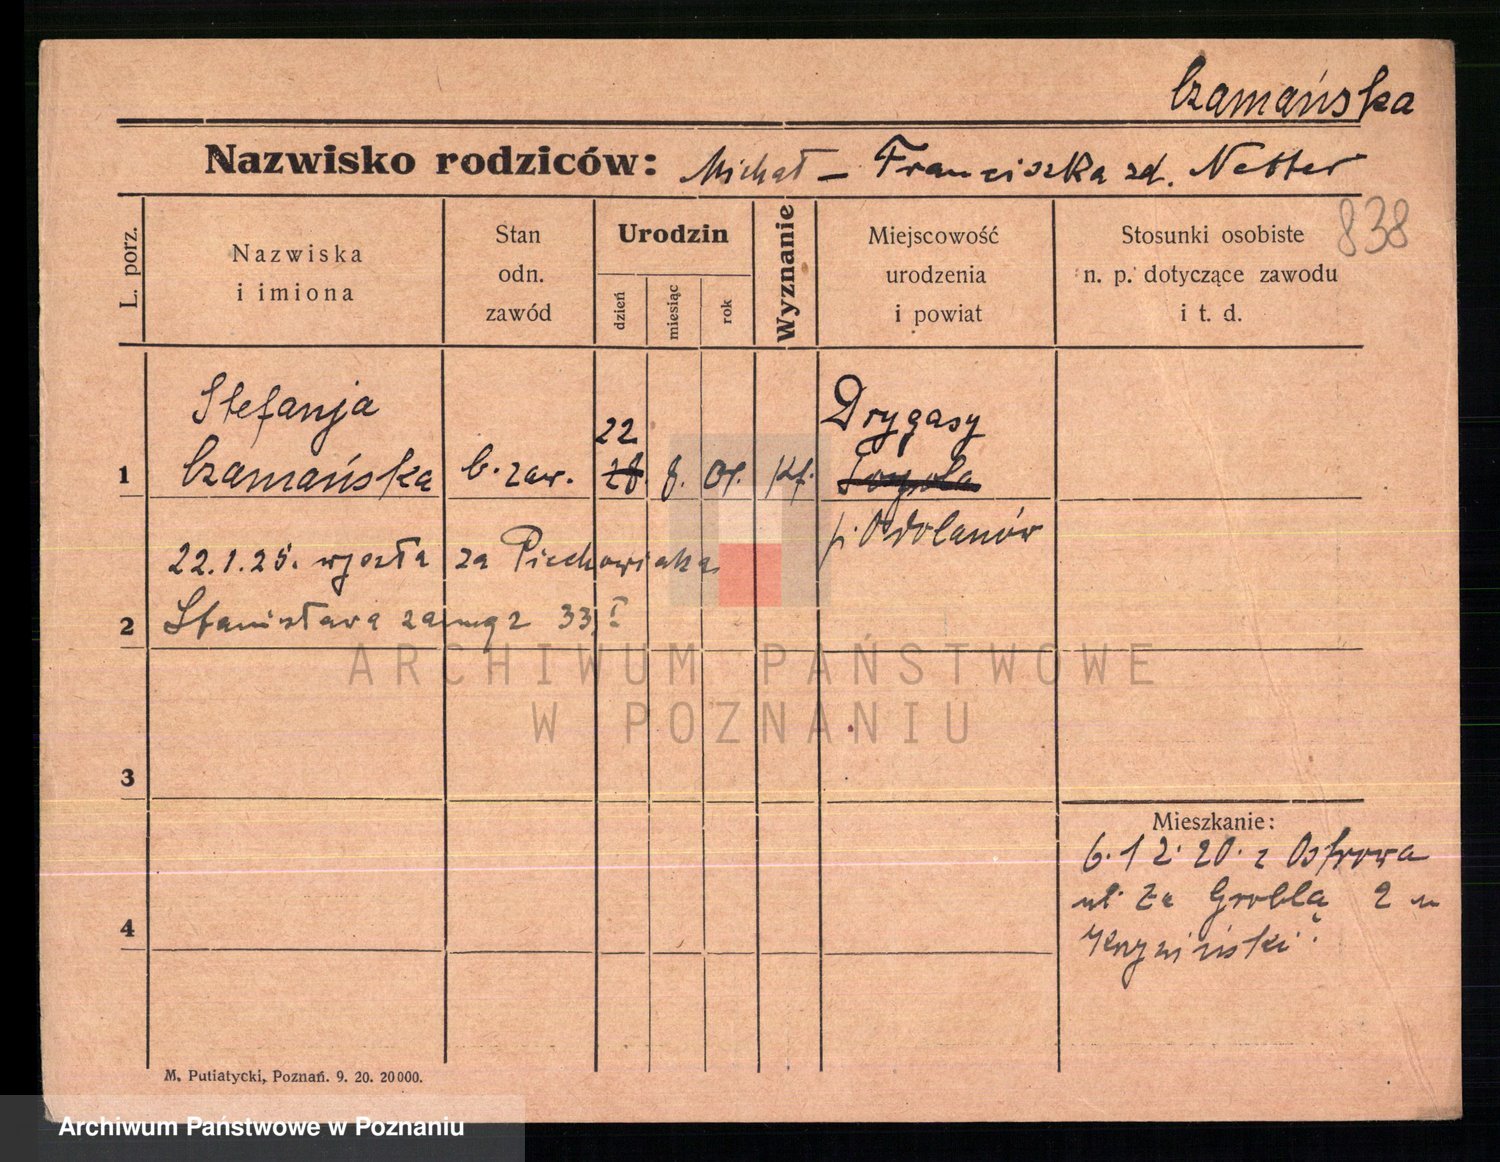 Czamańska
Nazwisko rodziców: Michał – Franciszka zd. Netter
838
L. porz.
Nazwiska
i imiona
Stan
odn.
zawód
Urodzin
dzień
miesiąc
rok
Wyznanie
Miejscowość
urodzenia
i powiat
Stosunki osobiste
n. p. dotyczące zawodu
i t. d.
Stefanja
22
Drygasy
1 Czamańska b. zaw. 28. 8. 01. Kf.
p. Odolanów
22.1.25. wyszła za Piechowiaka
2 Stanisława zamąz 33, I
ARCHIWUM PAŃSTWOWE
W POZNANIU
3
Mieszkanie:
6. 12. 20. z Ostrowa
ul. Za Groblą 2 u
4
M. Putiatycki, Poznań. 9. 20. 20000.
Archiwum Państwowe w Poznaniu